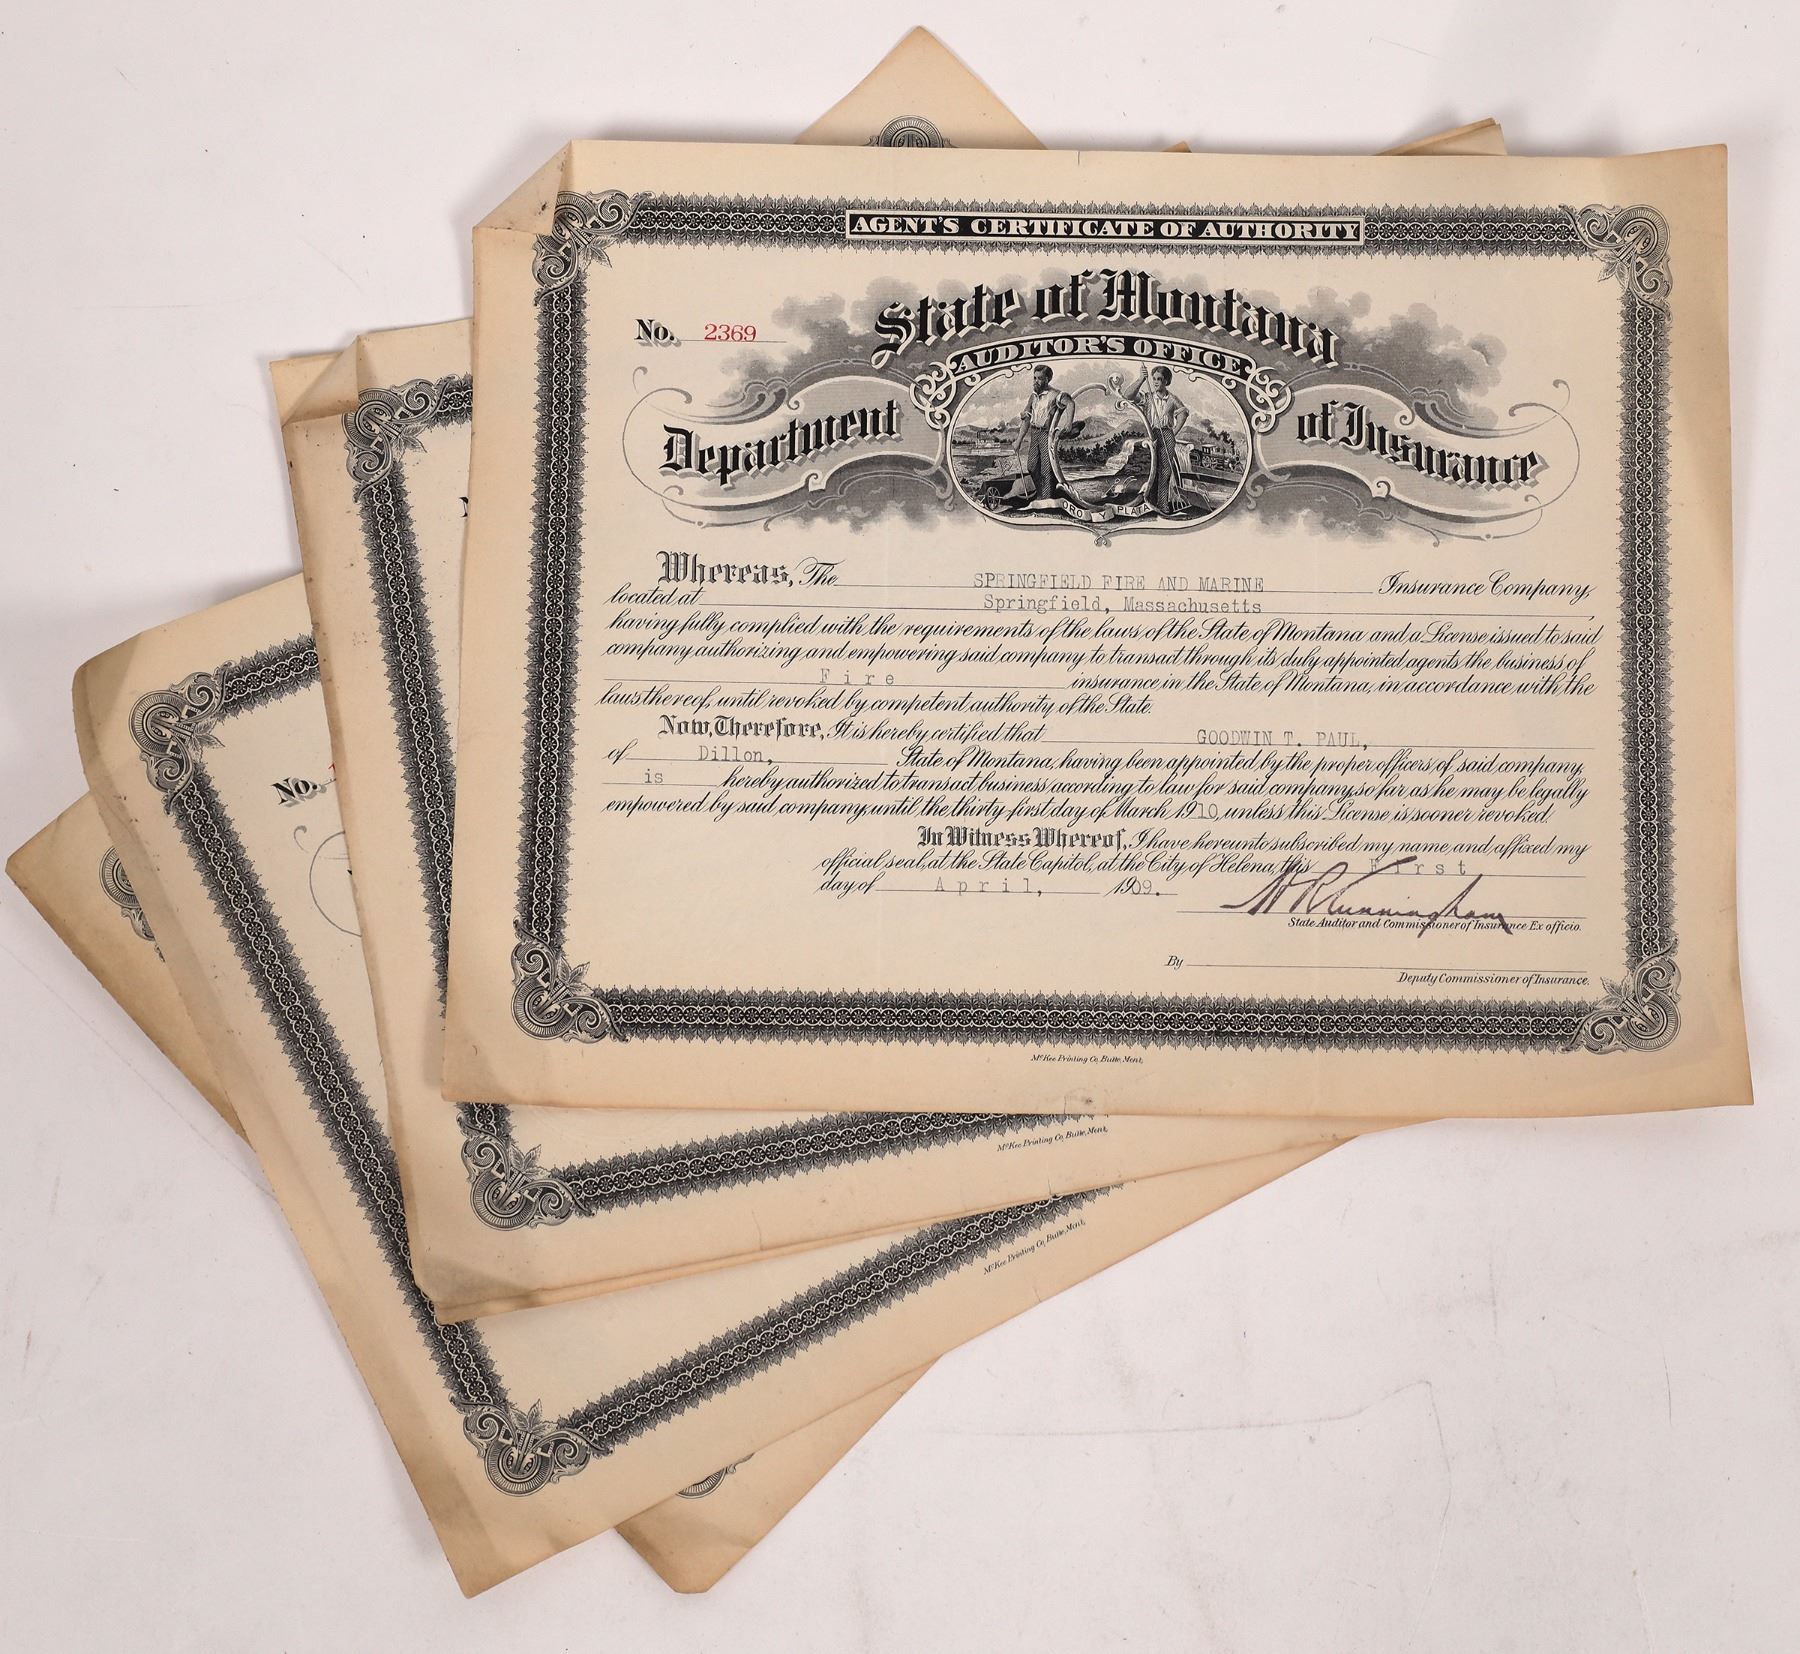 AGENT'S CERTIFICATE OF AUTHORITY
No. 2369
State of Montana
AUDITOR'S OFFICE
Department of Insurance
ORO Y PLATA
Whereas, The SPRINGFIELD FIRE AND MARINE Insurance Company,
located at Springfield, Massachusetts
having fully complied with the requirements of the laws of the State of Montana and a License issued to said
company authorizing and empowering said company to transact through its duly appointed agents the business of
Fire insurance in the State of Montana, in accordance with the
laws thereof, until revoked by competent authority of the State.
Now, Therefore, It is hereby certified that GOODWIN T. PAUL,
of Dillon, State of Montana, having been appointed by the proper officers of said company,
is hereby authorized to transact business according to law for said company, so far as he may be legally
empowered by said company, until the thirty-first day of March 1910, unless this License is sooner revoked.
In Witness Whereof, I have hereunto subscribed my name, and affixed my
official seal, at the State Capitol, at the City of Helena, this First
day of April, 1909.
H R Cunningham
State Auditor and Commissioner of Insurance Ex officio.
By
Deputy Commissioner of Insurance.
McKee Printing Co, Butte, Mont.
McKee Printing Co, Butte, Mont.
McKee Printing Co, Butte, Mont.
No.